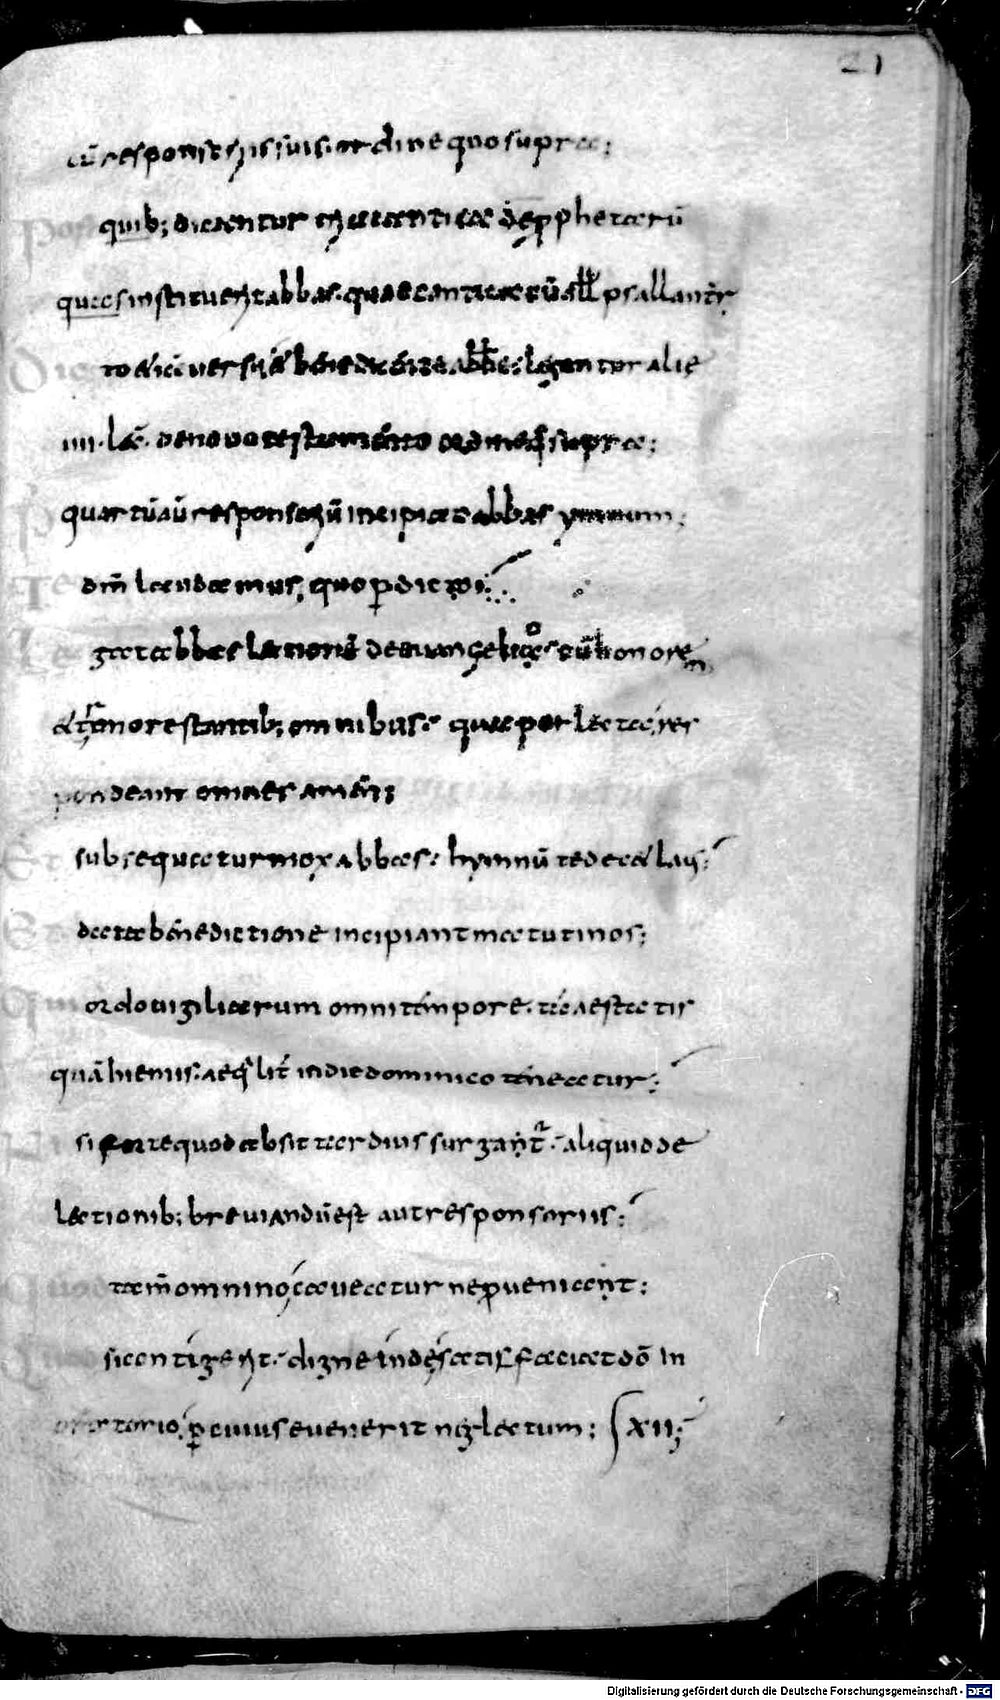 21
cū responsoriis suis ordine quo supra;
quib; dicantur tria cantica de pphetarū
quas instituerit abbas. quae cantica cū all psallantr
dicto etiā versu et benedicente abbe; legantur alię
iiii. lec̄. de novo testamento ordine q̊ supra;
quartū aū responsoriū incipiat abbas ymnum;
dm̄ laudamus, quo p̱dicto;
gat abbas lectionē de evangelio cū honorem
et tremore stantib; omnibus. qua perlecta, res
pondeant omnes amen;
subsequatur mox abbas; hymnū te decet laus;
data benedictione incipiant matutinos;
ordo vigiliarum omni tempore. tā aestatis
quā hiemis. aeq̄lit̄ in die dominico teneatur;
si forte quod absit tardius surgant̄. aliquid de
lectionib; breviandū est aut responsoriis;
tam̄ omnino caveatur ne p̱veniant;
si contigerit. digne inde satisfaciat dō in
oratorio, p̱ cuius evenerit neglectum; XII;
Digitalisierung gefördert durch die Deutsche Forschungsgemeinschaft - DFG